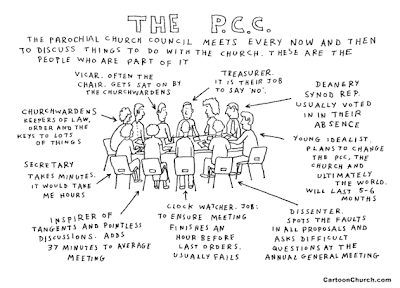 THE P.C.C.
THE PAROCHIAL CHURCH COUNCIL MEETS EVERY NOW AND THEN
TO DISCUSS THINGS TO DO WITH THE CHURCH. THESE ARE THE
PEOPLE WHO ARE PART OF IT
VICAR. OFTEN THE
CHAIR. GETS SAT ON BY
THE CHURCHWARDENS
TREASURER.
IT IS THEIR JOB
TO SAY 'NO'.
DEANERY
SYNOD REP.
USUALLY VOTED
IN IN THEIR
ABSENCE
CHURCHWARDENS
KEEPERS OF LAW,
ORDER AND THE
KEYS TO LOTS
OF THINGS
YOUNG IDEALIST.
PLANS TO CHANGE
THE PCC, THE
CHURCH AND
ULTIMATELY
THE WORLD.
WILL LAST 5-6
MONTHS
SECRETARY
TAKES MINUTES.
IT WOULD TAKE
ME HOURS
INSPIRER OF
TANGENTS AND POINTLESS
DISCUSSIONS. ADDS
37 MINUTES TO AVERAGE
MEETING
CLOCK WATCHER. JOB:
TO ENSURE MEETING
FINISHES AN
HOUR BEFORE
LAST ORDERS.
USUALLY FAILS
DISSENTER.
SPOTS THE FAULTS
IN ALL PROPOSALS AND
ASKS DIFFICULT
QUESTIONS AT THE
ANNUAL GENERAL MEETING
CartoonChurch.com